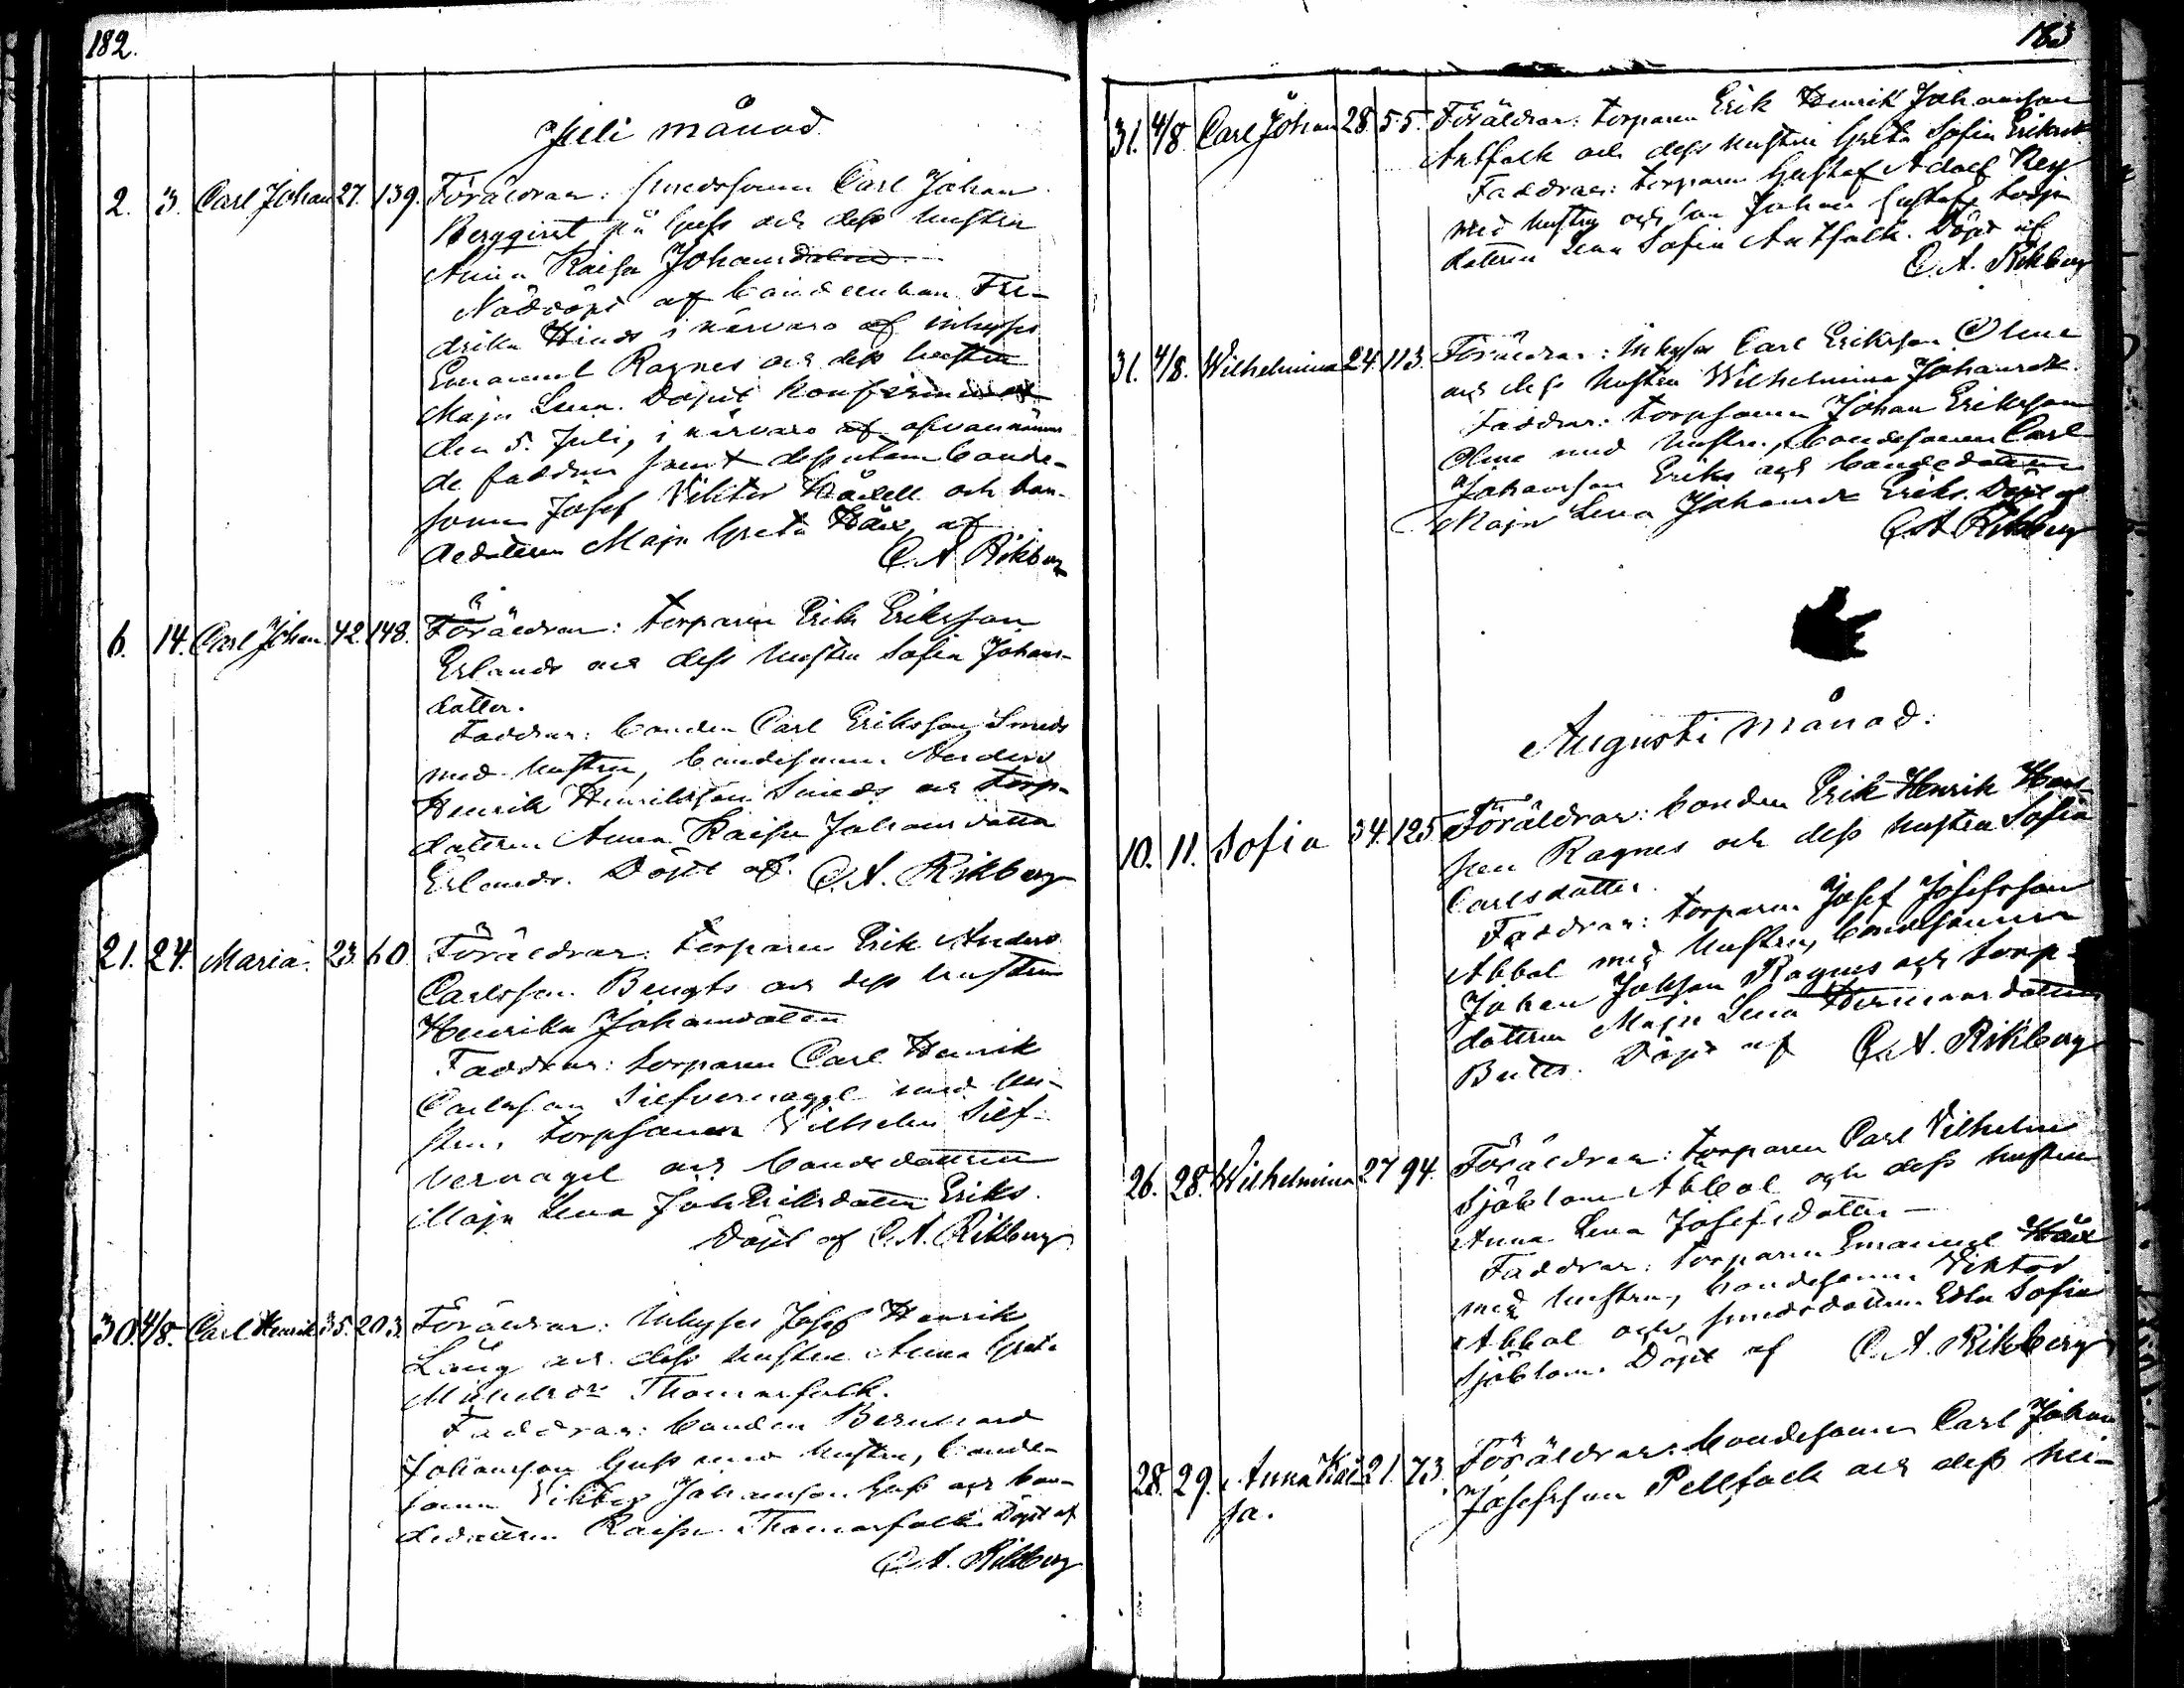 182.
Juli månad
2. 3. Carl Johan 27. 139. Föräldrar: smedssonen Carl Johan
Bergqvist på Guss och dess hustru
Anna Kaisa Johansdotter.
Nöddöpt af bondenkan Fre-
drika Hinds i närvaro af inhyses
Emanuel Ragnes och dess hustru
Maja Lena. Dopet konfirmerat
den 5. Juli, i närvaro af ofvannämn
de faddrar samt dessutom bonde-
sonen Josef Viktor och bon-
dedottern Maja Greta af
C. A. Rikberg
6. 14. Carl Johan 42. 148. Föräldrar: torparen Erik Eriksson
Erlands och dess hustru Sofia Johans-
dotter.
Faddrar: bonden Carl Eriksson Smeds
med hustru, bondesonen Anders
Henrik Henriksson Smeds och torp-
dottern Anna Kaisa Johansdotter
Erlands. Döpt af C. A. Rikberg
21. 24. Maria. 23. 60. Föräldrar: torparen Erik Anders
Carlsson Bengts och dess hustru
Henrika Johansdotter
Faddrar: torparen Carl Henrik
Carlsson Silfvernagel med hu-
stru, torpsonen Vilhelm Silf-
vernagel och bondedottern
Maja Lena Joh Eriksdotter Eriks.
Döpt af C. A. Rikberg
30. 4/8. Carl Henrik 35. 203. Föräldrar: Inhyses Josef Henrik
Lång och dess hustru Anna Greta
Thomasfolk.
Faddrar: bonden Bernhard
Johansson Guss med hustru, bonde-
sonen Viktor Johansson Guss och bon-
dedottern Kaisa Thomasfolk. Döpt af
C. A. Rikberg
183
31. 4/8 Carl Johan 28. 55. Föräldrar: torparen Erik Henrik Johansson
Antfolk och dess hustru Greta Sofia Eriksdr
Faddrar: torparen Gustaf Adolf
med hustru och son Johan Gustaf, torp
dottern Lena Sofia Antfolk. Döpt af
C. A. Rikberg
31. 4/8. Wilhelmina 24. 113. Föräldrar: Inhyses Carl Eriksson Olme
och dess hustru Wilhelmina Johansdr.
Faddrar: torpsonen Johan Eriksson
Olme med hustru, bondesonen Carl
Johansson Eriks och bondedottern
Maja Lena Johansdr Eriks. Döpt af
C. A. Rikberg
Augusti månad.
10. 11. Sofia 34. 125 Föräldrar: bonden Erik Henrik Hans-
son Ragnes och dess hustru Sofia
Carlsdotter.
Faddrar: torparen Josef Josefsson
Abbal med hustru, bondesonen
Johan Johsson Ragnes och torp-
dottern Maja Lena Hermansdotter
Butts. Döpt af C. A. Rikberg
26. 28. Wilhelmina 27 94. Föräldrar: torparen Carl Vilhelm
Sjöblom Abbal och dess hustru
Anna Lena Josefsdotter
Faddrar: torparen Emanuel
med hustru, bondesonen Viktor
Abbal och smedsdottern Edla Sofia
Sjöblom. Döpt af C. A. Rikberg
28. 29. Anna Kai- 21. 73. Föräldrar: bondesonen Carl Johan
sa. Josefsson Pellfolk och dess hu-